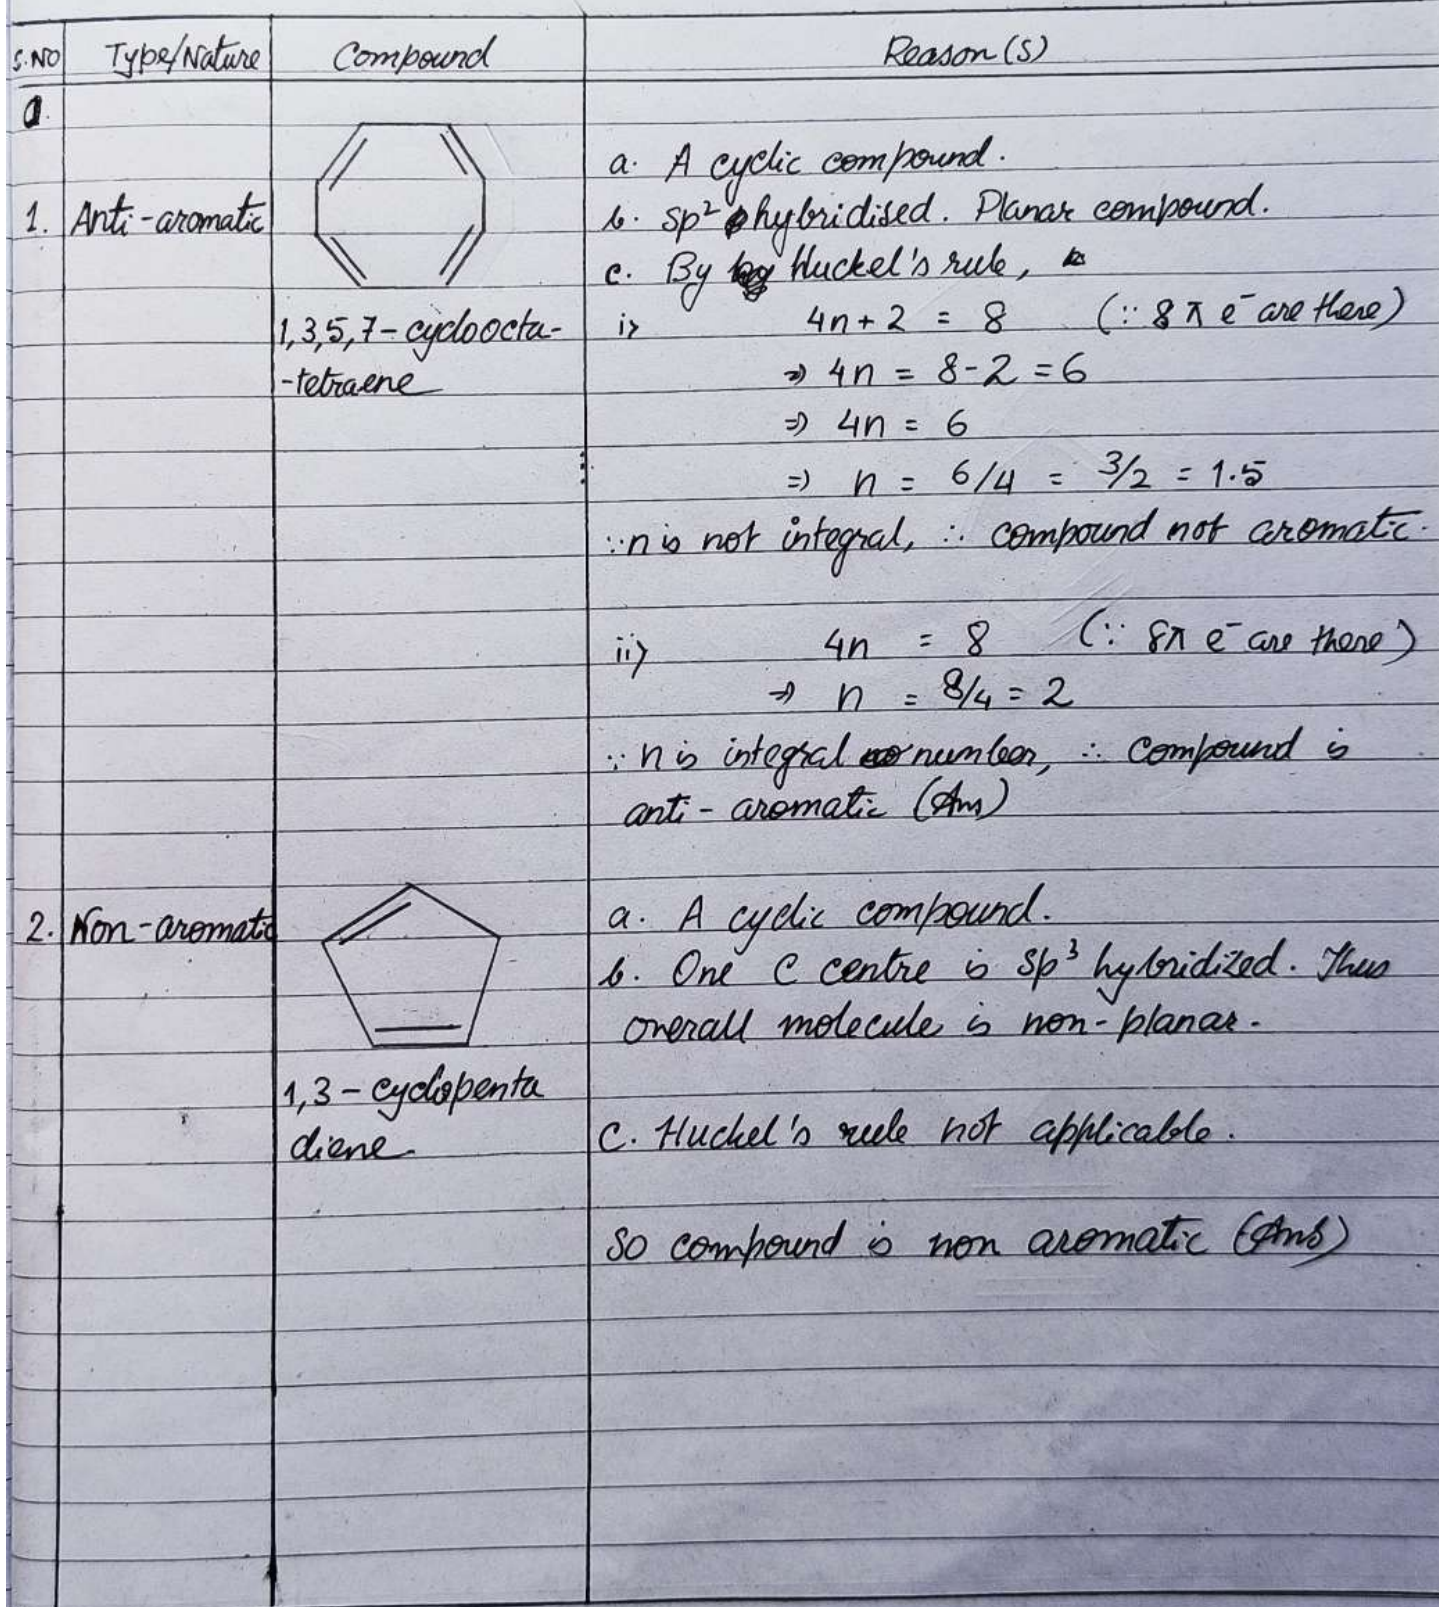 S.NO Type/Nature Compound Reason(s)
a.
a. A cyclic compound.
1. Anti-aromatic
b. sp² hybridised. Planar compound.
c. By Huckel's rule,
1,3,5,7-cycloocta-
-tetraene
i> 4n+2 = 8 (∵ 8 π e⁻ are there)
⇒ 4n = 8-2 = 6
⇒ 4n = 6
⇒ n = 6/4 = 3/2 = 1.5
∵ n is not integral, ∴ compound not aromatic.
ii> 4n = 8 (∵ 8π e⁻ are there)
⇒ n = 8/4 = 2
∵ n is integral number, ∴ compound is
anti-aromatic (Ans)
2. Non-aromatic
1,3-cyclopenta
diene
a. A cyclic compound.
b. One C centre is sp³ hybridized. Thus
overall molecule is non-planar.
C. Huckel's rule not applicable.
So compound is non aromatic (Ans)